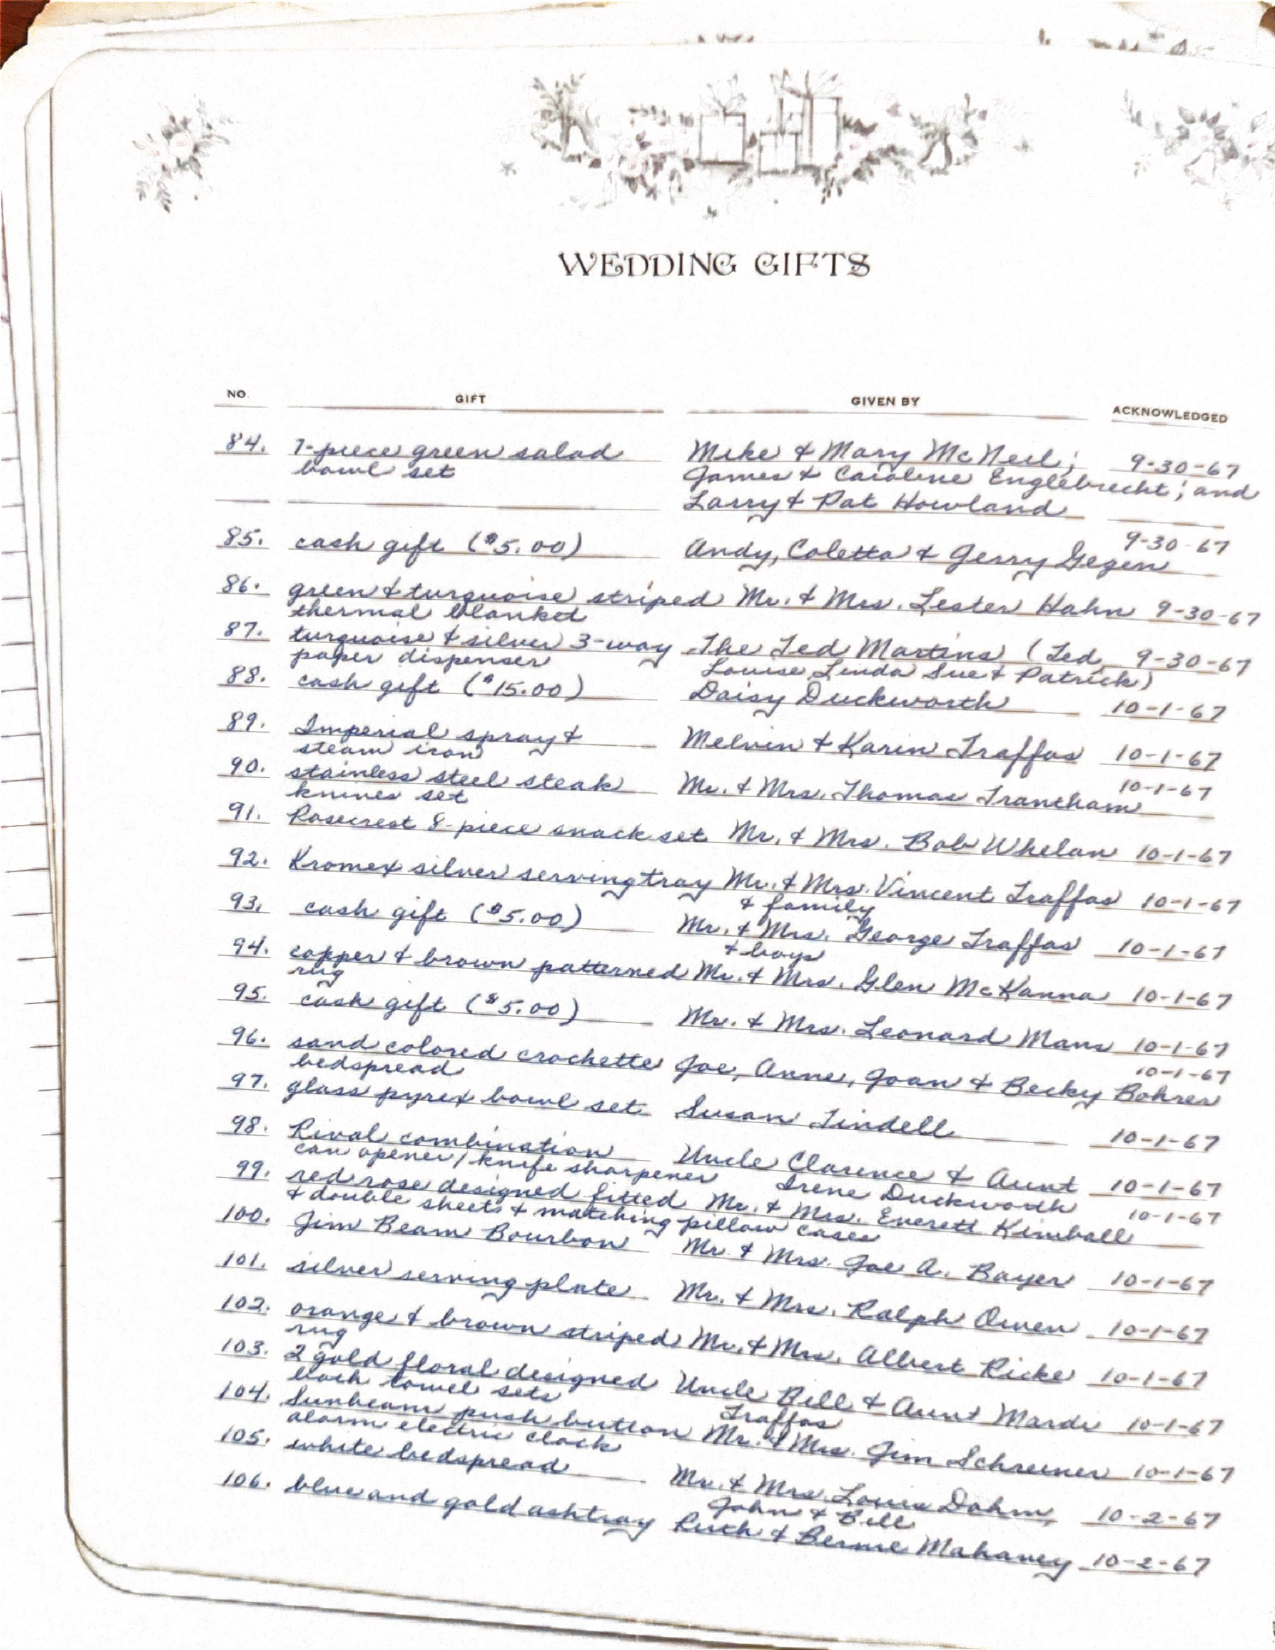 WEDDING GIFTS
NO. GIFT GIVEN BY ACKNOWLEDGED
84. 7-piece green salad Mike & Mary McNeil; 9-30-67
bowl set James & Caroline Englebrecht; and
Larry & Pat Howland
85. cash gift ($5.00) Andy, Coletta & Gerry Gegen 9-30-67
86. green & turquoise striped Mr. & Mrs. Lester Hahn 9-30-67
thermal blanket
87. turquoise & silver 3-way The Ted Martins (Ted, 9-30-67
paper dispenser Louise Linda Sue & Patrick)
88. cash gift ($15.00) Daisy Duckworth 10-1-67
89. Imperial spray & Melvin & Karin Traffas 10-1-67
steam iron
90. stainless steel steak Mr. & Mrs. Thomas Trantham 10-1-67
knives set
91. Rosecrest 8-piece snack set Mr. & Mrs. Bob Whelan 10-1-67
92. Kromex silver serving tray Mr. & Mrs. Vincent Traffas 10-1-67
& family
93. cash gift ($5.00) Mr. & Mrs. George Traffas 10-1-67
& boys
94. copper & brown patterned Mr. & Mrs. Glen McKanna 10-1-67
rug
95. cash gift ($5.00) Mr. & Mrs. Leonard Mans 10-1-67
96. sand colored crochette Joe, Anne, Joan & Becky Bohrer 10-1-67
bedspread
97. glass pyrex bowl set Susan Tindell 10-1-67
98. Rival combination Uncle Clarence & Aunt 10-1-67
can opener/knife sharpener Irene Duckworth
99. red rose designed fitted Mr. & Mrs. Everett Kimball 10-1-67
& double sheets & matching pillow cases
100. Jim Beam Bourbon Mr. & Mrs. Joe A. Bayer 10-1-67
101. silver serving plate Mr. & Mrs. Ralph Owen 10-1-67
102. orange & brown striped Mr. & Mrs. Albert Ricke 10-1-67
rug
103. 2 gold floral designed Uncle Bill & Aunt Mardi 10-1-67
bath towel sets Traffas
104. Sunbeam push button Mr. & Mrs. Jim Schreiner 10-1-67
alarm electric clock
105. white bedspread Mr. & Mrs. Louis Dohm, 10-2-67
John & Bill
106. blue and gold ashtray Ruth & Bernie Mahaney 10-2-67